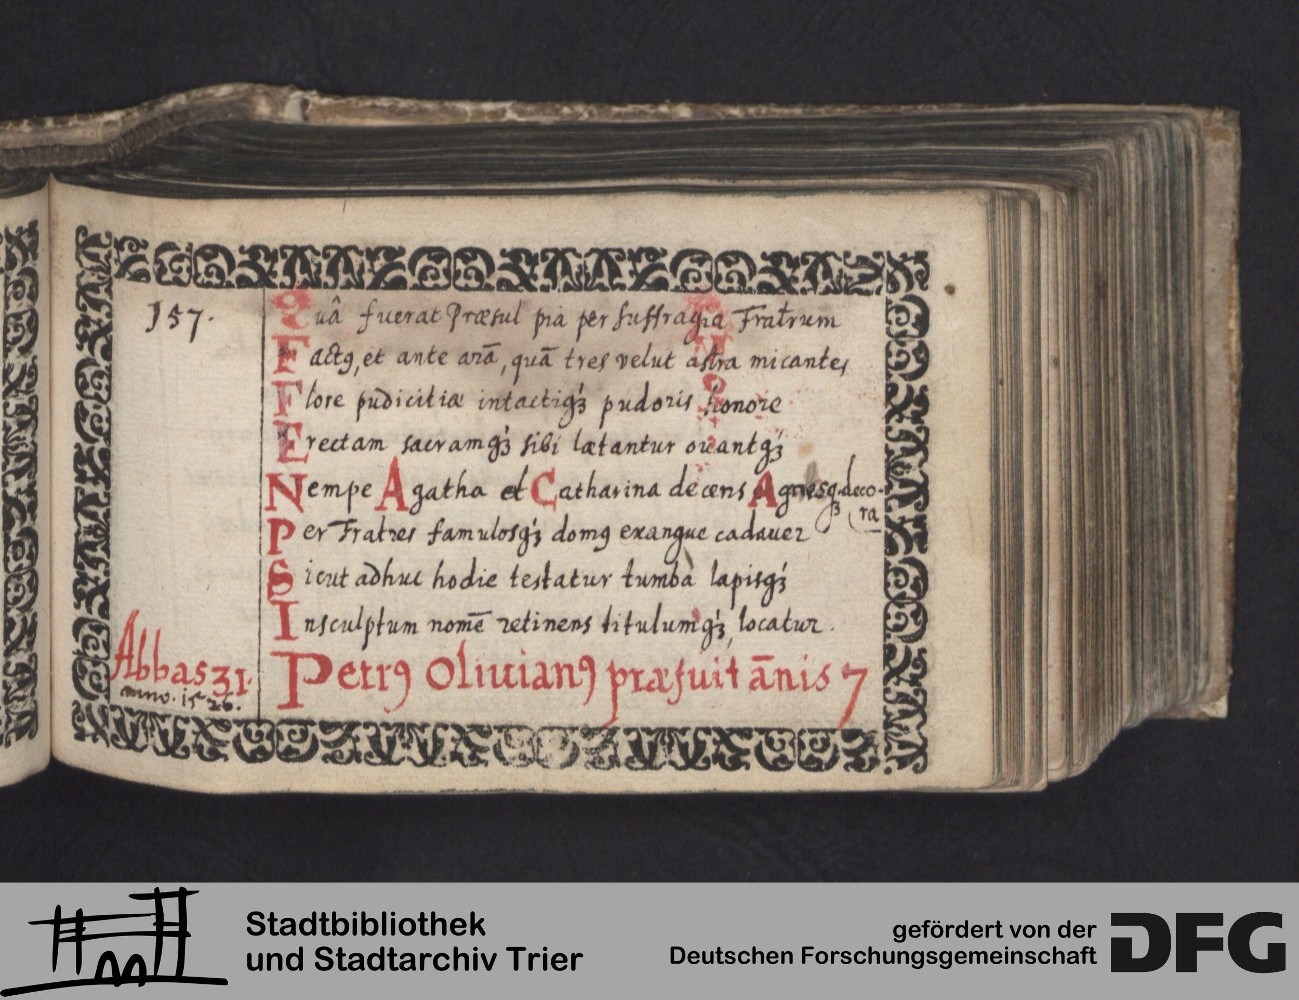 157.
Quâ fuerat Præsul pia per suffragia Fratrum
Factꝰ, et ante arā, quā tres velut astra micantes
Flore pudicitiæ intactiqꝫ pudoris honore
Erectam sacramqꝫ sibi lætantur ovantqꝫ
Nempe Agatha et Catharina decens Agnesqꝫ deco-
ra
Per Fratres famulosqꝫ domꝰ exangue cadauer
Sicut adhuc hodie testatur tumbà lapisqꝫ
Insculptum nomē retinens titulumqꝫ, locatur.
Abbas 31.
anno. 1526.
Petrꝰ Oliuianꝰ præfuit ānis 7
Stadtbibliothek
und Stadtarchiv Trier
gefördert von der
Deutschen Forschungsgemeinschaft
DFG